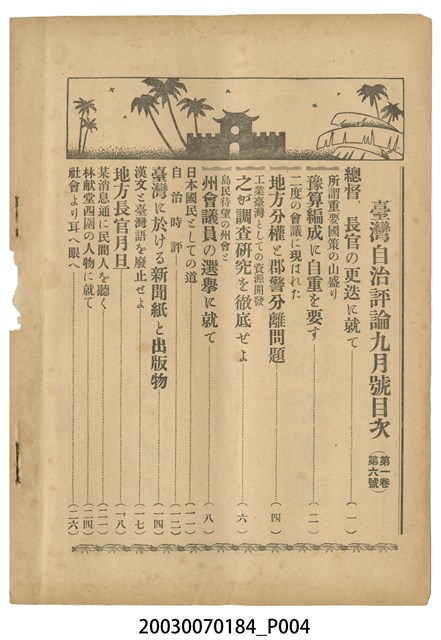 臺灣自治評論九月號目次(第一卷第六號)
總督、長官の更迭に就て(一)
所謂重要國策の山盛り
豫算編成に自重を要す(二)
二度の會議に現はれた
地方分權と郡警分離問題(四)
工業臺灣としての資源開發
之が調査研究を徹底せよ(六)
島民待望の州會と
州會議員の選擧に就て(八)
日本國民としての道(一一)
自治時評(一二)
臺灣に於ける新聞紙と出版物(一四)
漢文と臺灣語を廢止せよ(一七)
地方長官月旦(一八)
某消息通に民間人を聽く(二一)
林献堂四圍の人物に就て(二四)
社會より耳へ眼へ(二六)
20030070184_P004